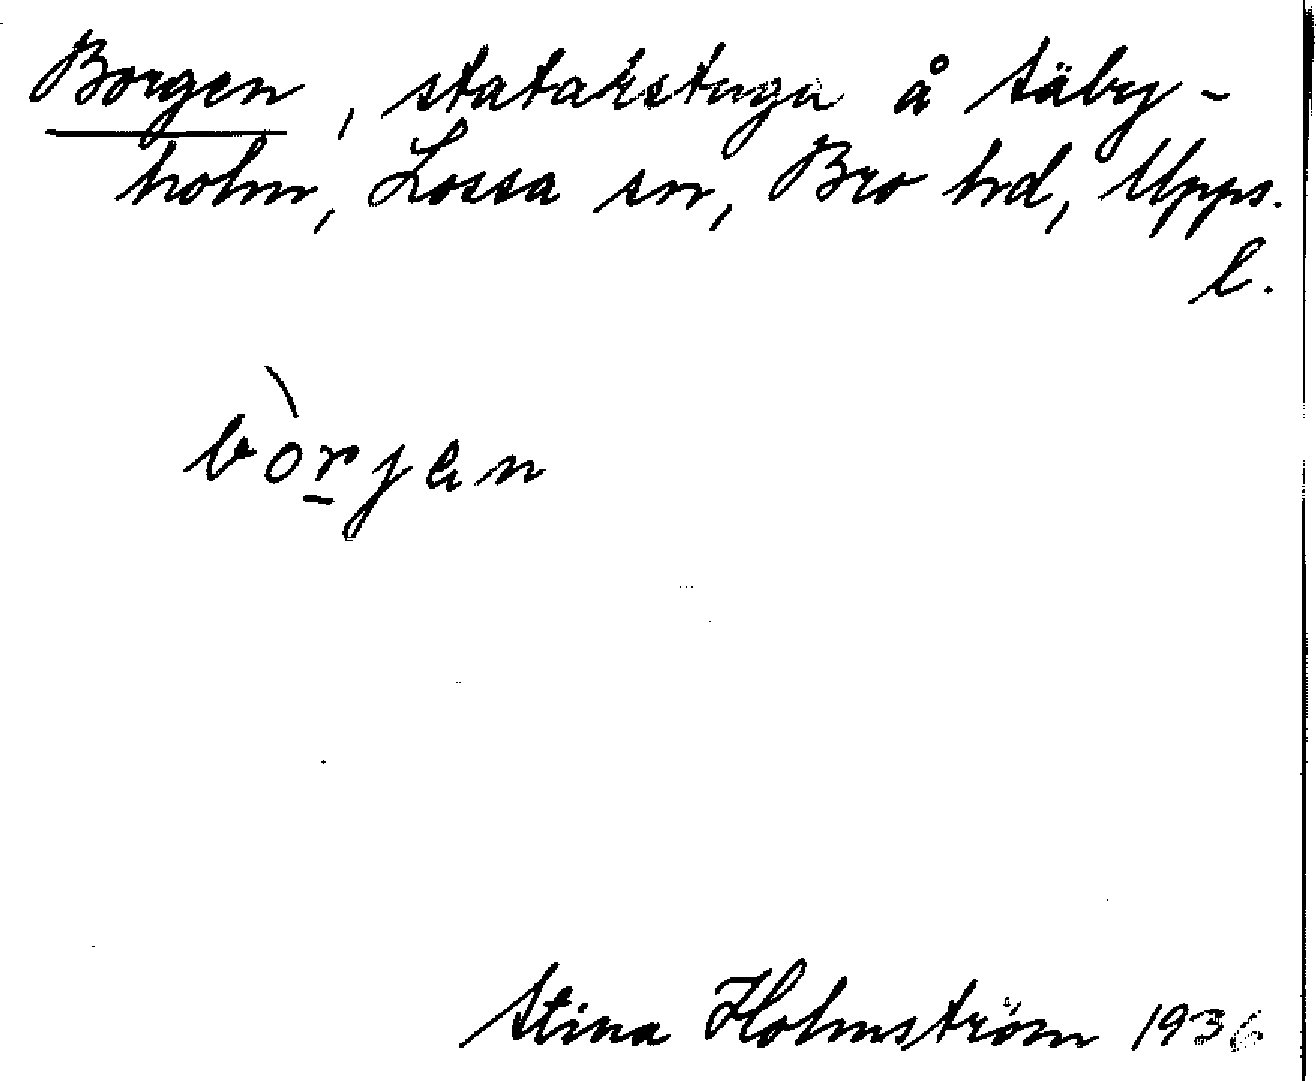 Borgen, statarstuga å Säby-
holm, Lossa sn, Bro hd, Upps.
l.
bòrjan
Stina Holmström 1936